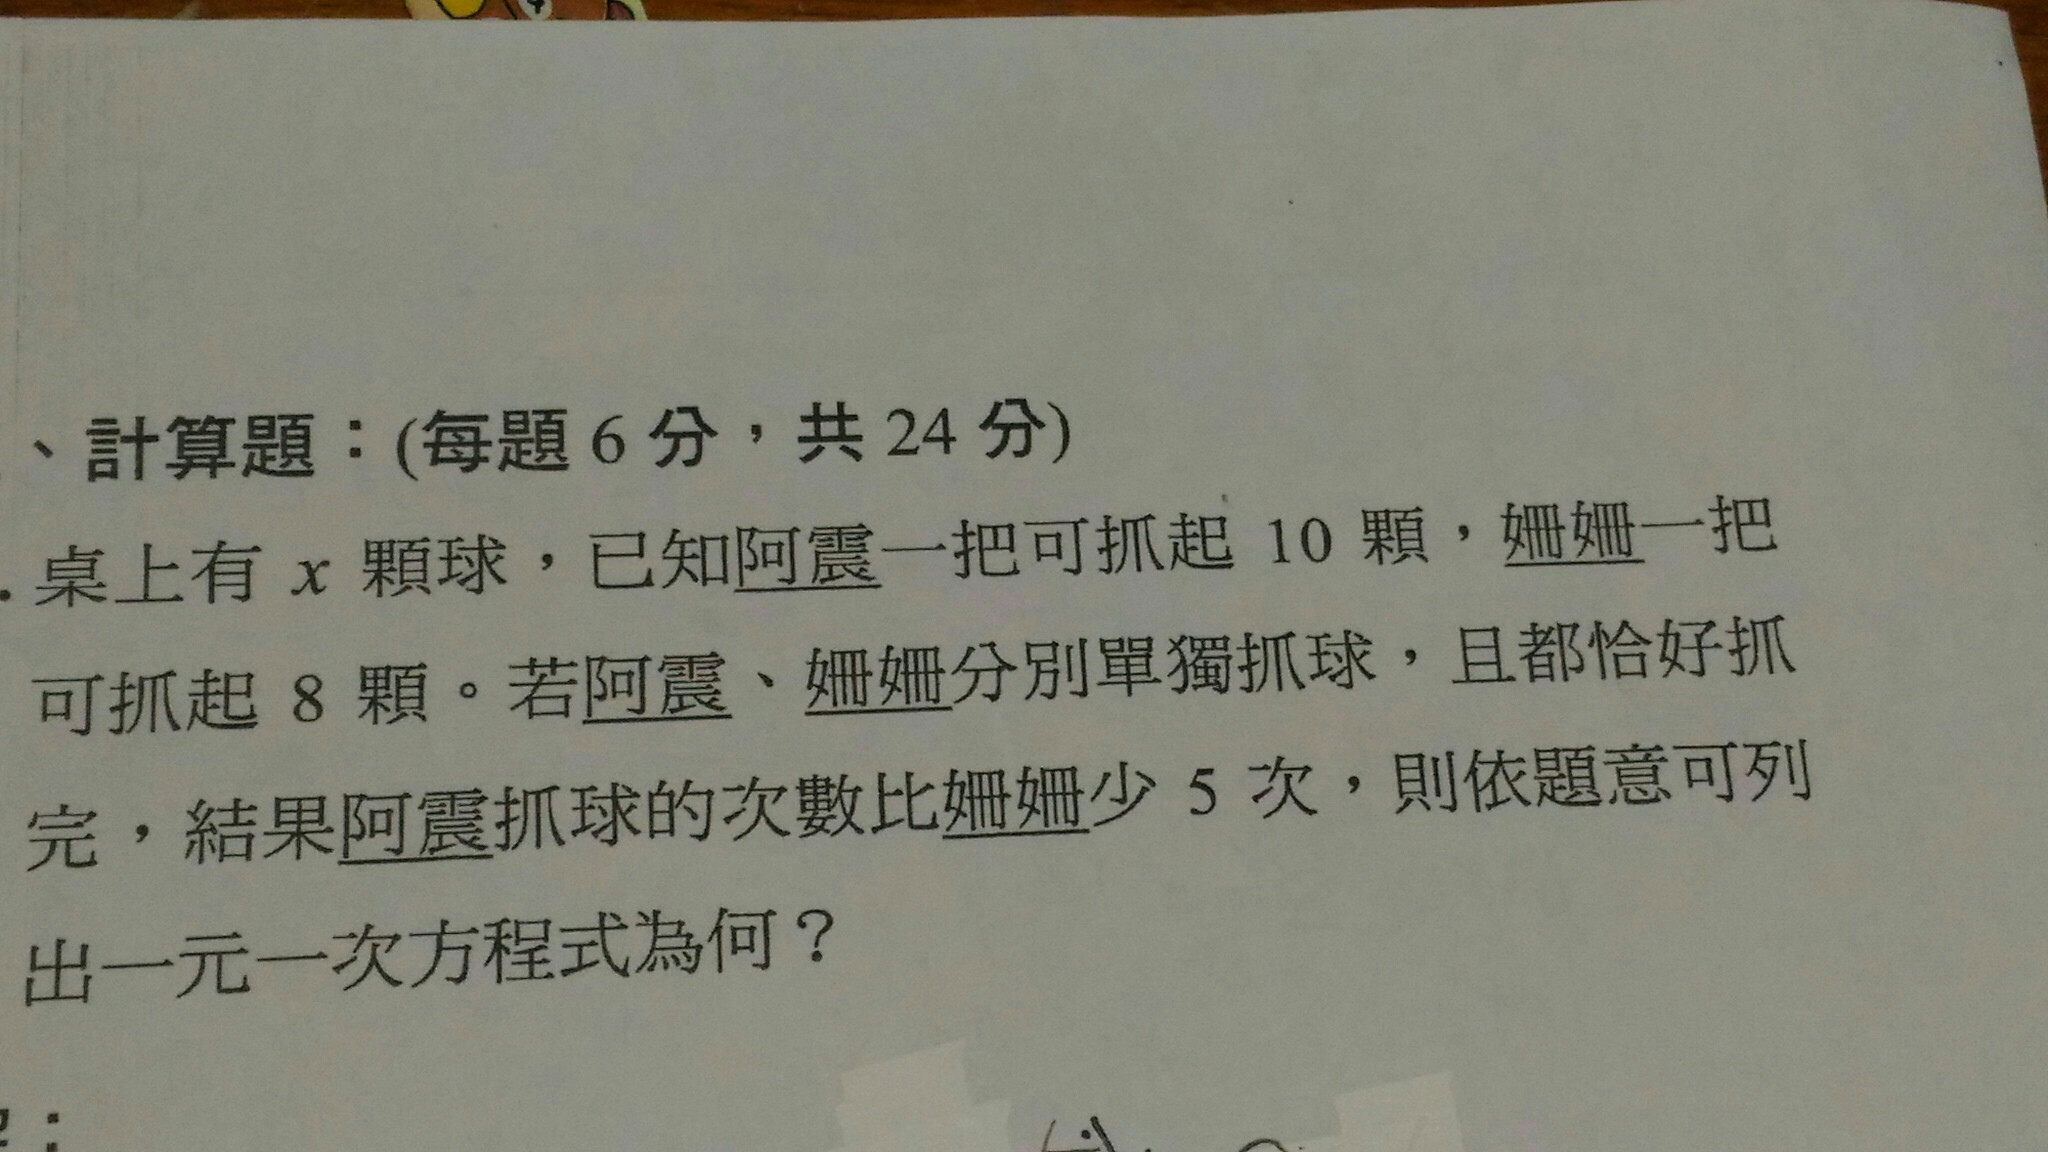 、計算題：(每題 6 分，共 24 分)
. 桌上有 x 顆球，已知阿震一把可抓起 10 顆，姍姍一把
可抓起 8 顆。若阿震、姍姍分別單獨抓球，且都恰好抓
完，結果阿震抓球的次數比姍姍少 5 次，則依題意可列
出一元一次方程式為何？